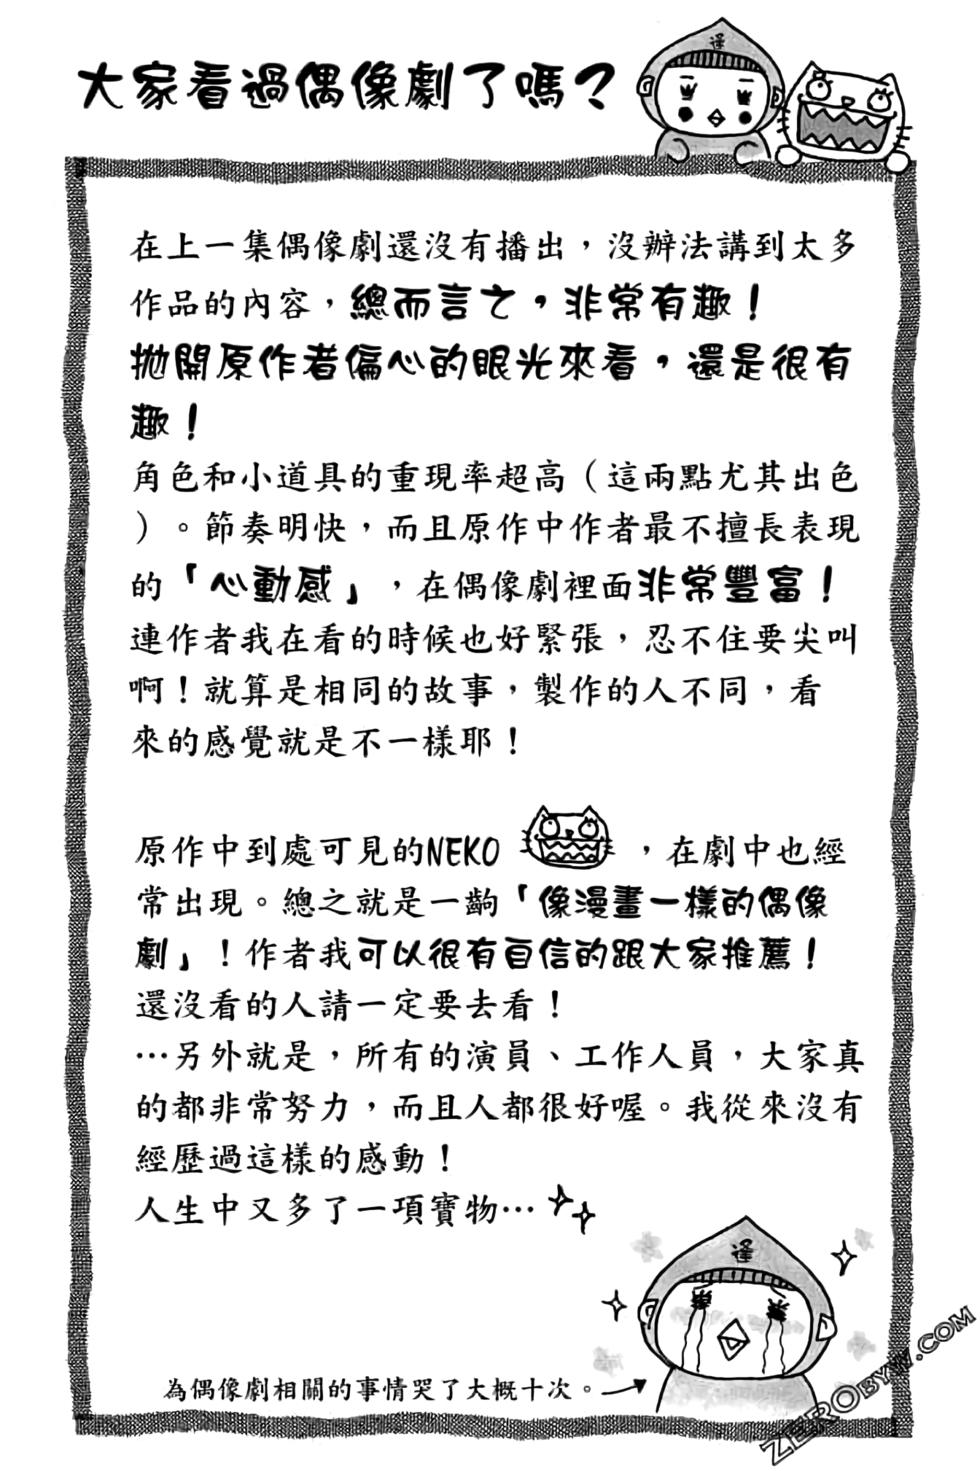 大家看過偶像劇了嗎？
逢
在上一集偶像劇還沒有播出，沒辦法講到太多
作品的內容，總而言之，非常有趣！
拋開原作者偏心的眼光來看，還是很有
趣！
角色和小道具的重現率超高（這兩點尤其出色
）。節奏明快，而且原作中作者最不擅長表現
的「心動感」，在偶像劇裡面非常豐富！
連作者我在看的時候也好緊張，忍不住要尖叫
啊！就算是相同的故事，製作的人不同，看
來的感覺就是不一樣耶！
原作中到處可見的NEKO ，在劇中也經
常出現。總之就是一齣「像漫畫一樣的偶像
劇」！作者我可以很有自信的跟大家推薦！
還沒看的人請一定要去看！
…另外就是，所有的演員、工作人員，大家真
的都非常努力，而且人都很好喔。我從來沒有
經歷過這樣的感動！
人生中又多了一項寶物…
逢
為偶像劇相關的事情哭了大概十次。
ZEROBYW.COM